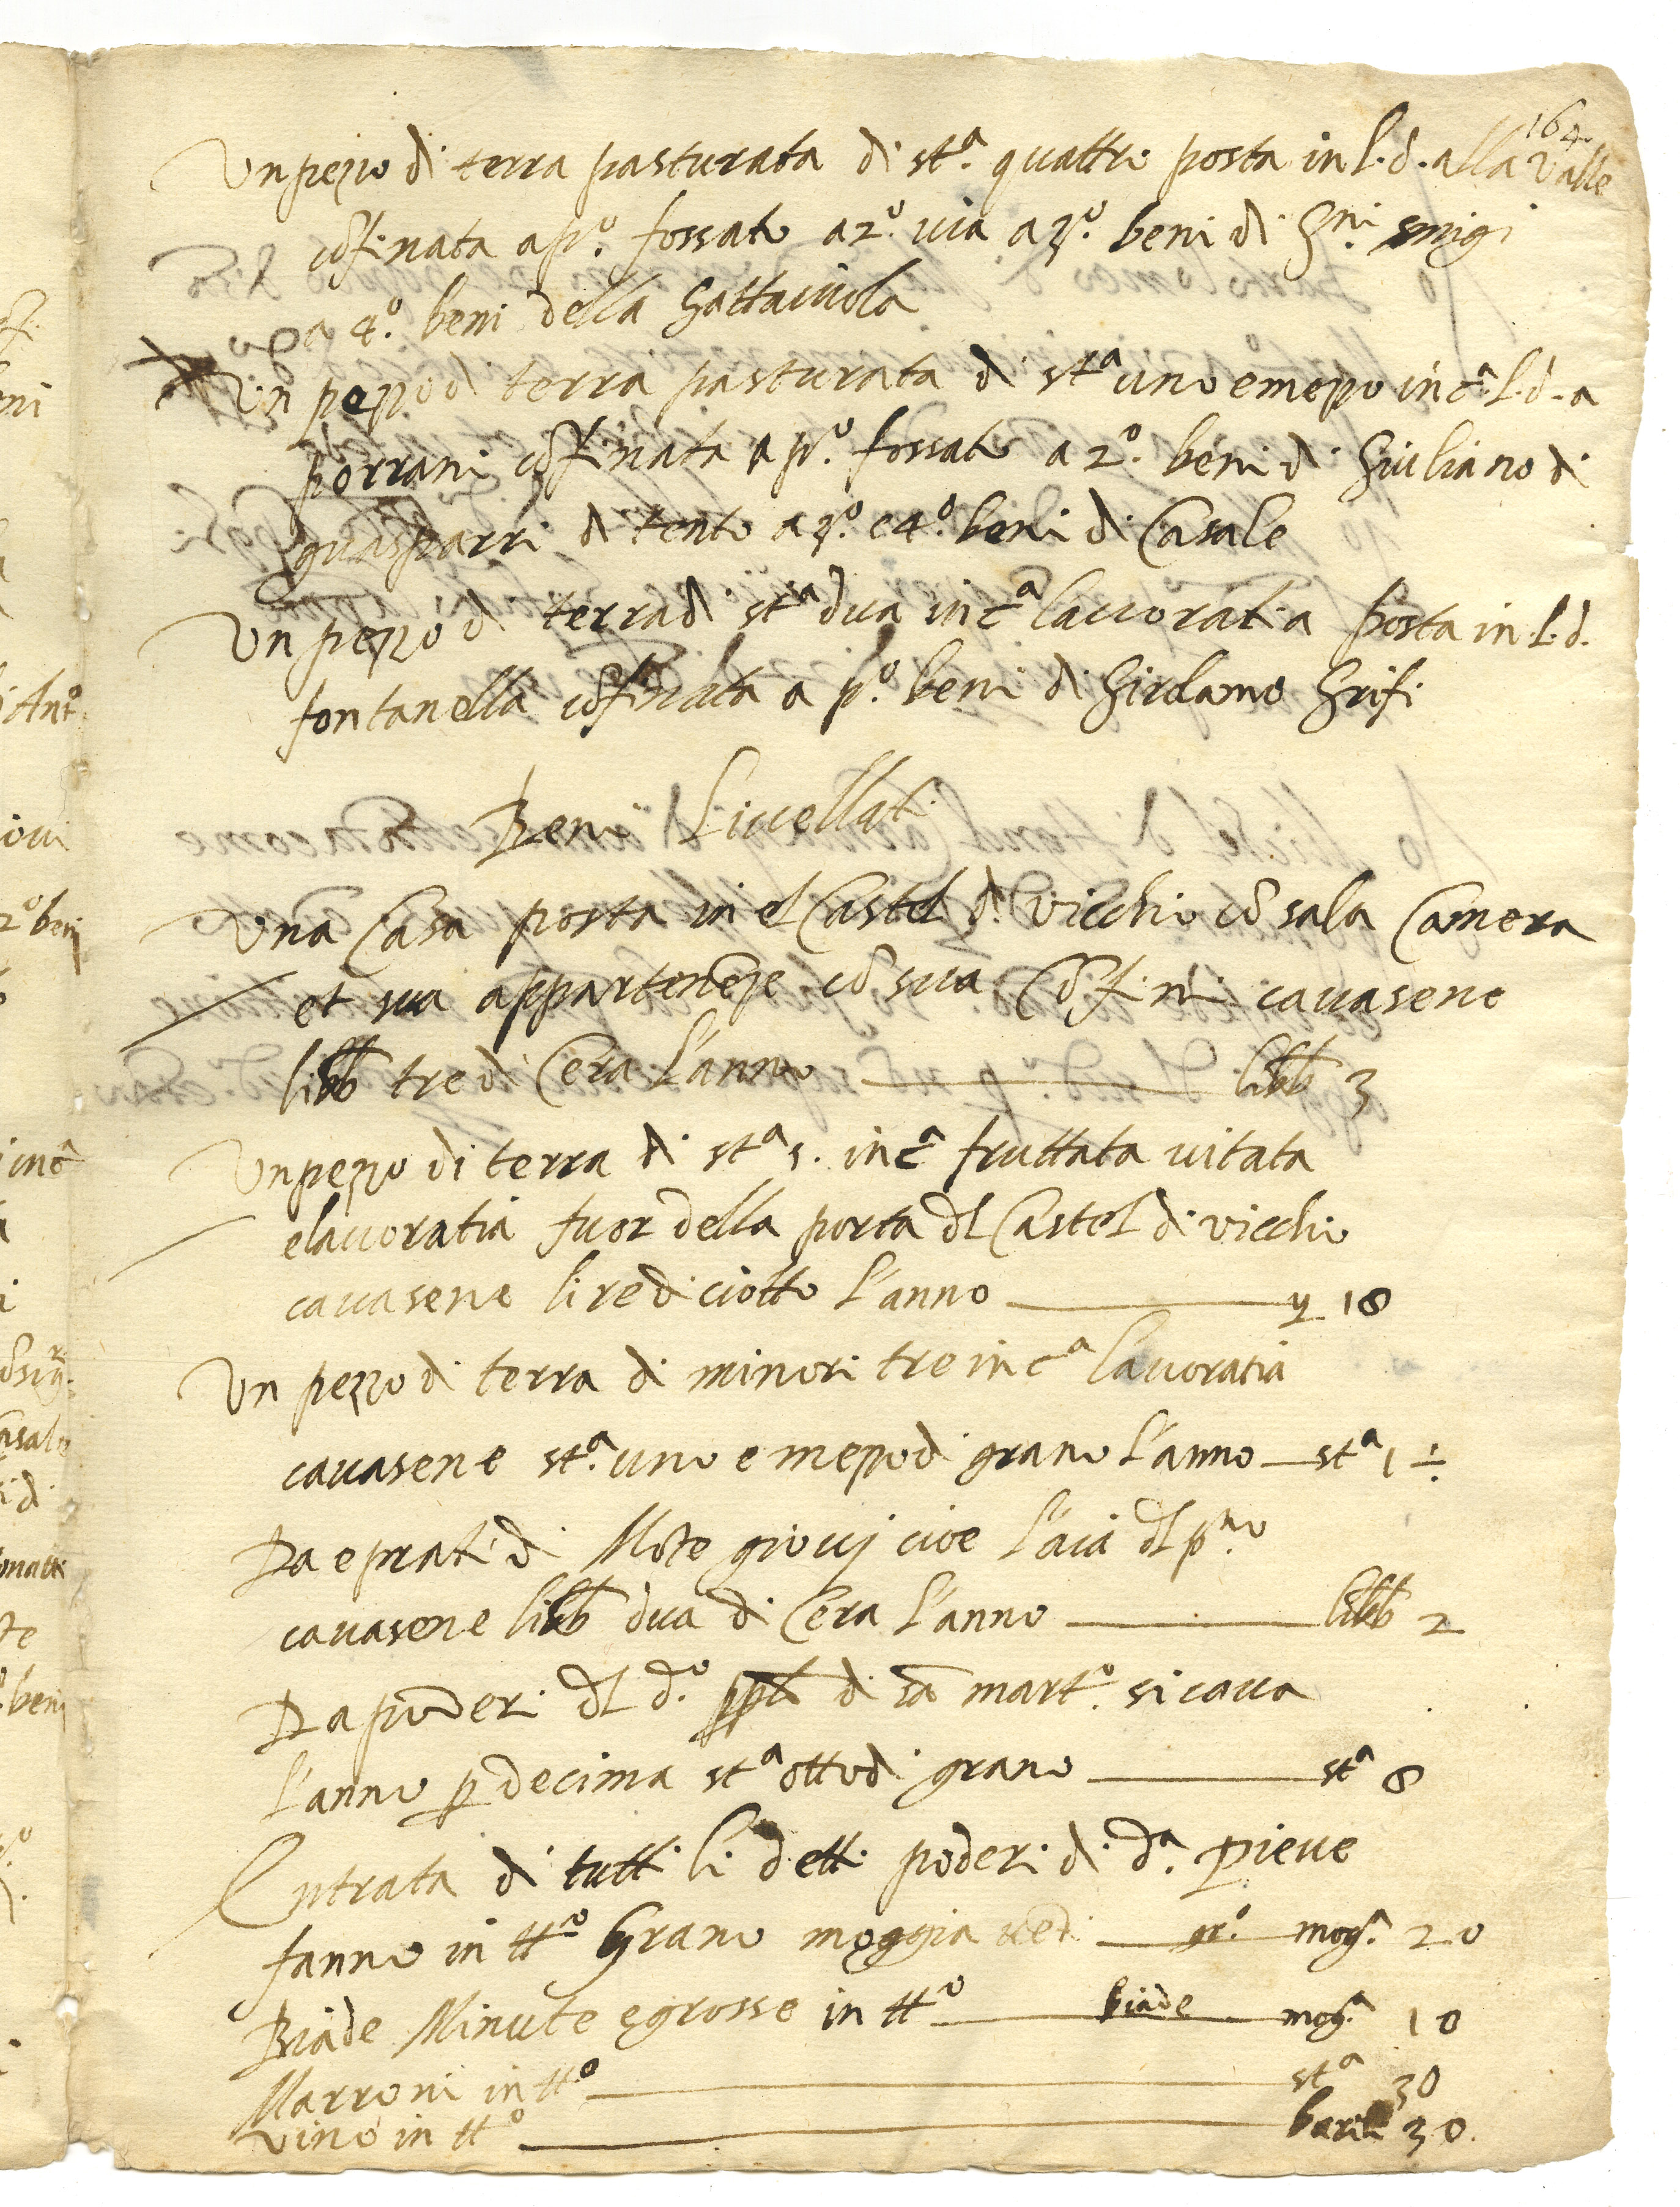 164
Un pezzo di terra pasturata di st.ª quattro posta in l. d. alla Valle
cōfinata a p.º fossato a 2.º via a 3.º beni di
a 4.º beni della Gattaiuola
Un pezzo di terra pasturata di st.ª uno e mezzo in c.ª l. d. a
porrani cōfinata a p.º fossato a 2.º beni di Giuliano di
guasparri di tento a 3.º e 4.º beni di Casale
Un pezzo di terra di st.ª dua in c.ª lauoratia posta in l. d.
fontanella cōfinata a p.º beni di Girolamo Grifi
Beni Liuellati
Una Casa posta in el Castel di vicchio cō sala Camera
et sua appartenēze cō sua Cōfini cauasene
libb tre di Cera l'anno — libb 3
Un pezzo di terra di st.ª 5. in c.ª fruttata uitata
e lauoratia fuor della porta dl Castel di vicchio
cauasene lire diciotto l'anno — 18
Un pezzo di terra di minori tre in c.ª lauoratia
cauasene st.ª uno e mezzo di grano l'anno — st.ª 1 ÷
Da e prati di Mōte giouj cioe l'aia dl p.no
cauasene libb dua di Cera l'anno — libb 2
Da poderi dl d.º di sā mart.º si caua
l'anno p decima st.ª otto di grano — st.ª 8
Entrata di tutti li detti poderi di d.ª Pieue
fanno in tt.º Grano moggia — gr.º mog.ª 20
Biade Minute e grosse in tt.º — biade mog.ª 10
Marroni in tt.º — st.ª 30
vino in tt.º — barili 30.